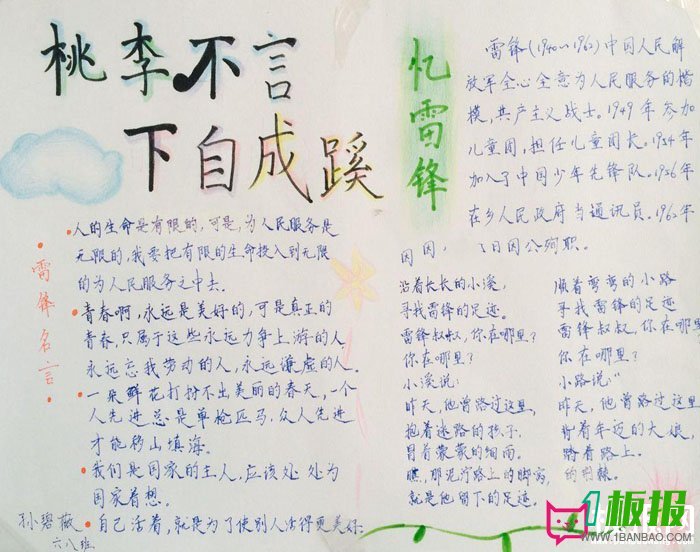 桃李不言
下自成蹊
忆雷锋
雷锋(1940~1962)中国人民解
放军全心全意为人民服务的楷
模,共产主义战士。1949年参加
儿童团,担任儿童团长。1954年
加入了中国少年先锋队。1956年
在乡人民政府当通讯员。196
日因公殉职。
雷锋名言:
人的生命是有限的,可是,为人民服务是
无限的,我要把有限的生命投入到无限
的为人民服务之中去.
青春啊,永远是美好的,可是真正的
青春,只属于这些永远力争上游的人
永远忘我劳动的人,永远谦虚的人.
一朵鲜花打扮不出美丽的春天,一个
人先进总是单枪匹马,众人先进
才能移山填海。
我们是国家的主人,应该处处为
国家着想.
自己活着,就是为了使别人活得更美好.
孙碧薇
六八班
沿着长长的小溪,
寻找雷锋的足迹.
雷锋叔叔,你在哪里?
你在哪里?
小溪说:
昨天,他曾路过这里,
抱着迷路的孩子,
冒着蒙蒙的细雨。
瞧,那泥泞路上的脚窝,
就是他留下的足迹.
顺着弯弯的小路
寻找雷锋的足迹
雷锋叔叔,你在哪里
你在哪里?
小路说:"
昨天,他曾路过这里
背着年迈的大娘,
踏着路上
的荆棘.
1板报
WWW.1BANBAO.COM